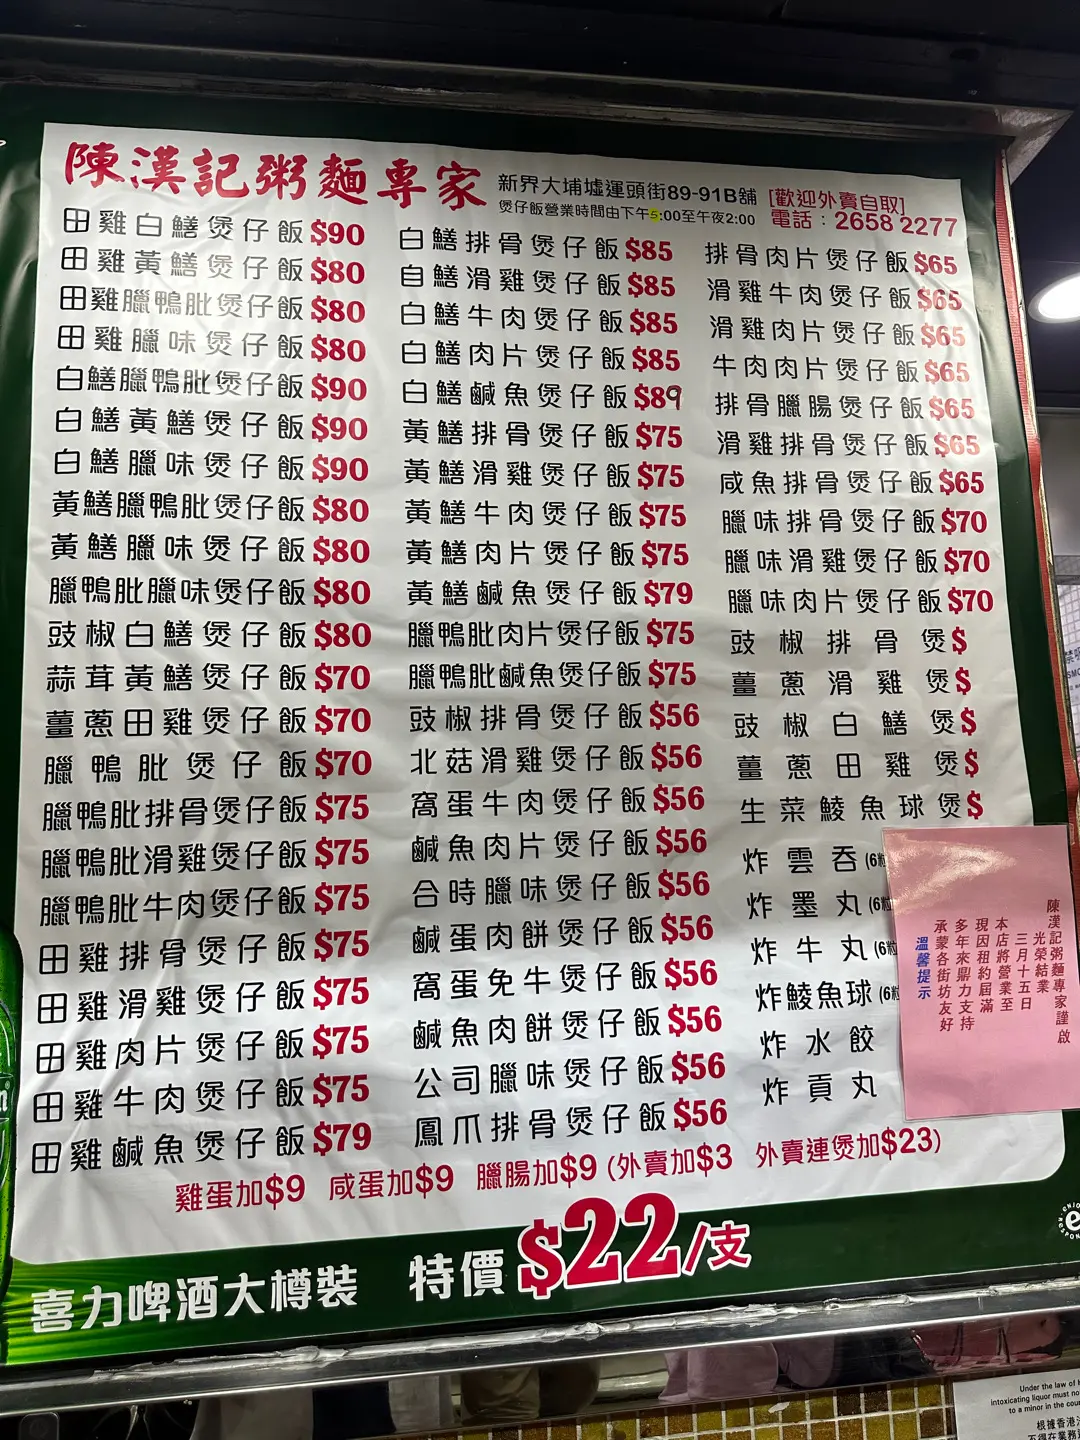 陳漢記粥麵專家
新界大埔墟運頭街89-91B舖
煲仔飯營業時間由下午5:00至午夜2:00
[歡迎外賣自取]
電話：2658 2277
田雞白鱔煲仔飯$90
田雞黃鱔煲仔飯$80
田雞臘鴨肶煲仔飯$80
田雞臘味煲仔飯$80
白鱔臘鴨肶煲仔飯$90
白鱔黃鱔煲仔飯$90
白鱔臘味煲仔飯$90
黃鱔臘鴨肶煲仔飯$80
黃鱔臘味煲仔飯$80
臘鴨肶臘味煲仔飯$80
豉椒白鱔煲仔飯$80
蒜茸黃鱔煲仔飯$70
薑蔥田雞煲仔飯$70
臘鴨肶煲仔飯$70
臘鴨肶排骨煲仔飯$75
臘鴨肶滑雞煲仔飯$75
臘鴨肶牛肉煲仔飯$75
田雞排骨煲仔飯$75
田雞滑雞煲仔飯$75
田雞肉片煲仔飯$75
田雞牛肉煲仔飯$75
田雞鹹魚煲仔飯$79
白鱔排骨煲仔飯$85
白鱔滑雞煲仔飯$85
白鱔牛肉煲仔飯$85
白鱔肉片煲仔飯$85
白鱔鹹魚煲仔飯$89
黃鱔排骨煲仔飯$75
黃鱔滑雞煲仔飯$75
黃鱔牛肉煲仔飯$75
黃鱔肉片煲仔飯$75
黃鱔鹹魚煲仔飯$79
臘鴨肶肉片煲仔飯$75
臘鴨肶鹹魚煲仔飯$75
豉椒排骨煲仔飯$56
北菇滑雞煲仔飯$56
窩蛋牛肉煲仔飯$56
鹹魚肉片煲仔飯$56
合時臘味煲仔飯$56
鹹蛋肉餅煲仔飯$56
窩蛋免牛煲仔飯$56
鹹魚肉餅煲仔飯$56
公司臘味煲仔飯$56
鳳爪排骨煲仔飯$56
排骨肉片煲仔飯$65
滑雞牛肉煲仔飯$65
滑雞肉片煲仔飯$65
牛肉肉片煲仔飯$65
排骨臘腸煲仔飯$65
滑雞排骨煲仔飯$65
咸魚排骨煲仔飯$65
臘味排骨煲仔飯$70
臘味滑雞煲仔飯$70
臘味肉片煲仔飯$70
豉椒排骨煲$
薑蔥滑雞煲$
豉椒白鱔煲$
薑蔥田雞煲$
生菜鯪魚球煲$
炸雲吞(6粒
炸墨丸(6粒
炸牛丸(6粒
炸鯪魚球(6粒
炸水餃
炸貢丸
溫馨提示
承蒙各街坊友好
多年來鼎力支持
現因租約屆滿
本店將營業至
三月十五日
光榮結業
陳漢記粥麵專家謹啟
雞蛋加$9 咸蛋加$9 臘腸加$9 (外賣加$3 外賣連煲加$23)
喜力啤酒大樽裝 特價$22/支
Under the law of
intoxicating liquor must no
to a minor in the cou
根據香港
不得在業務